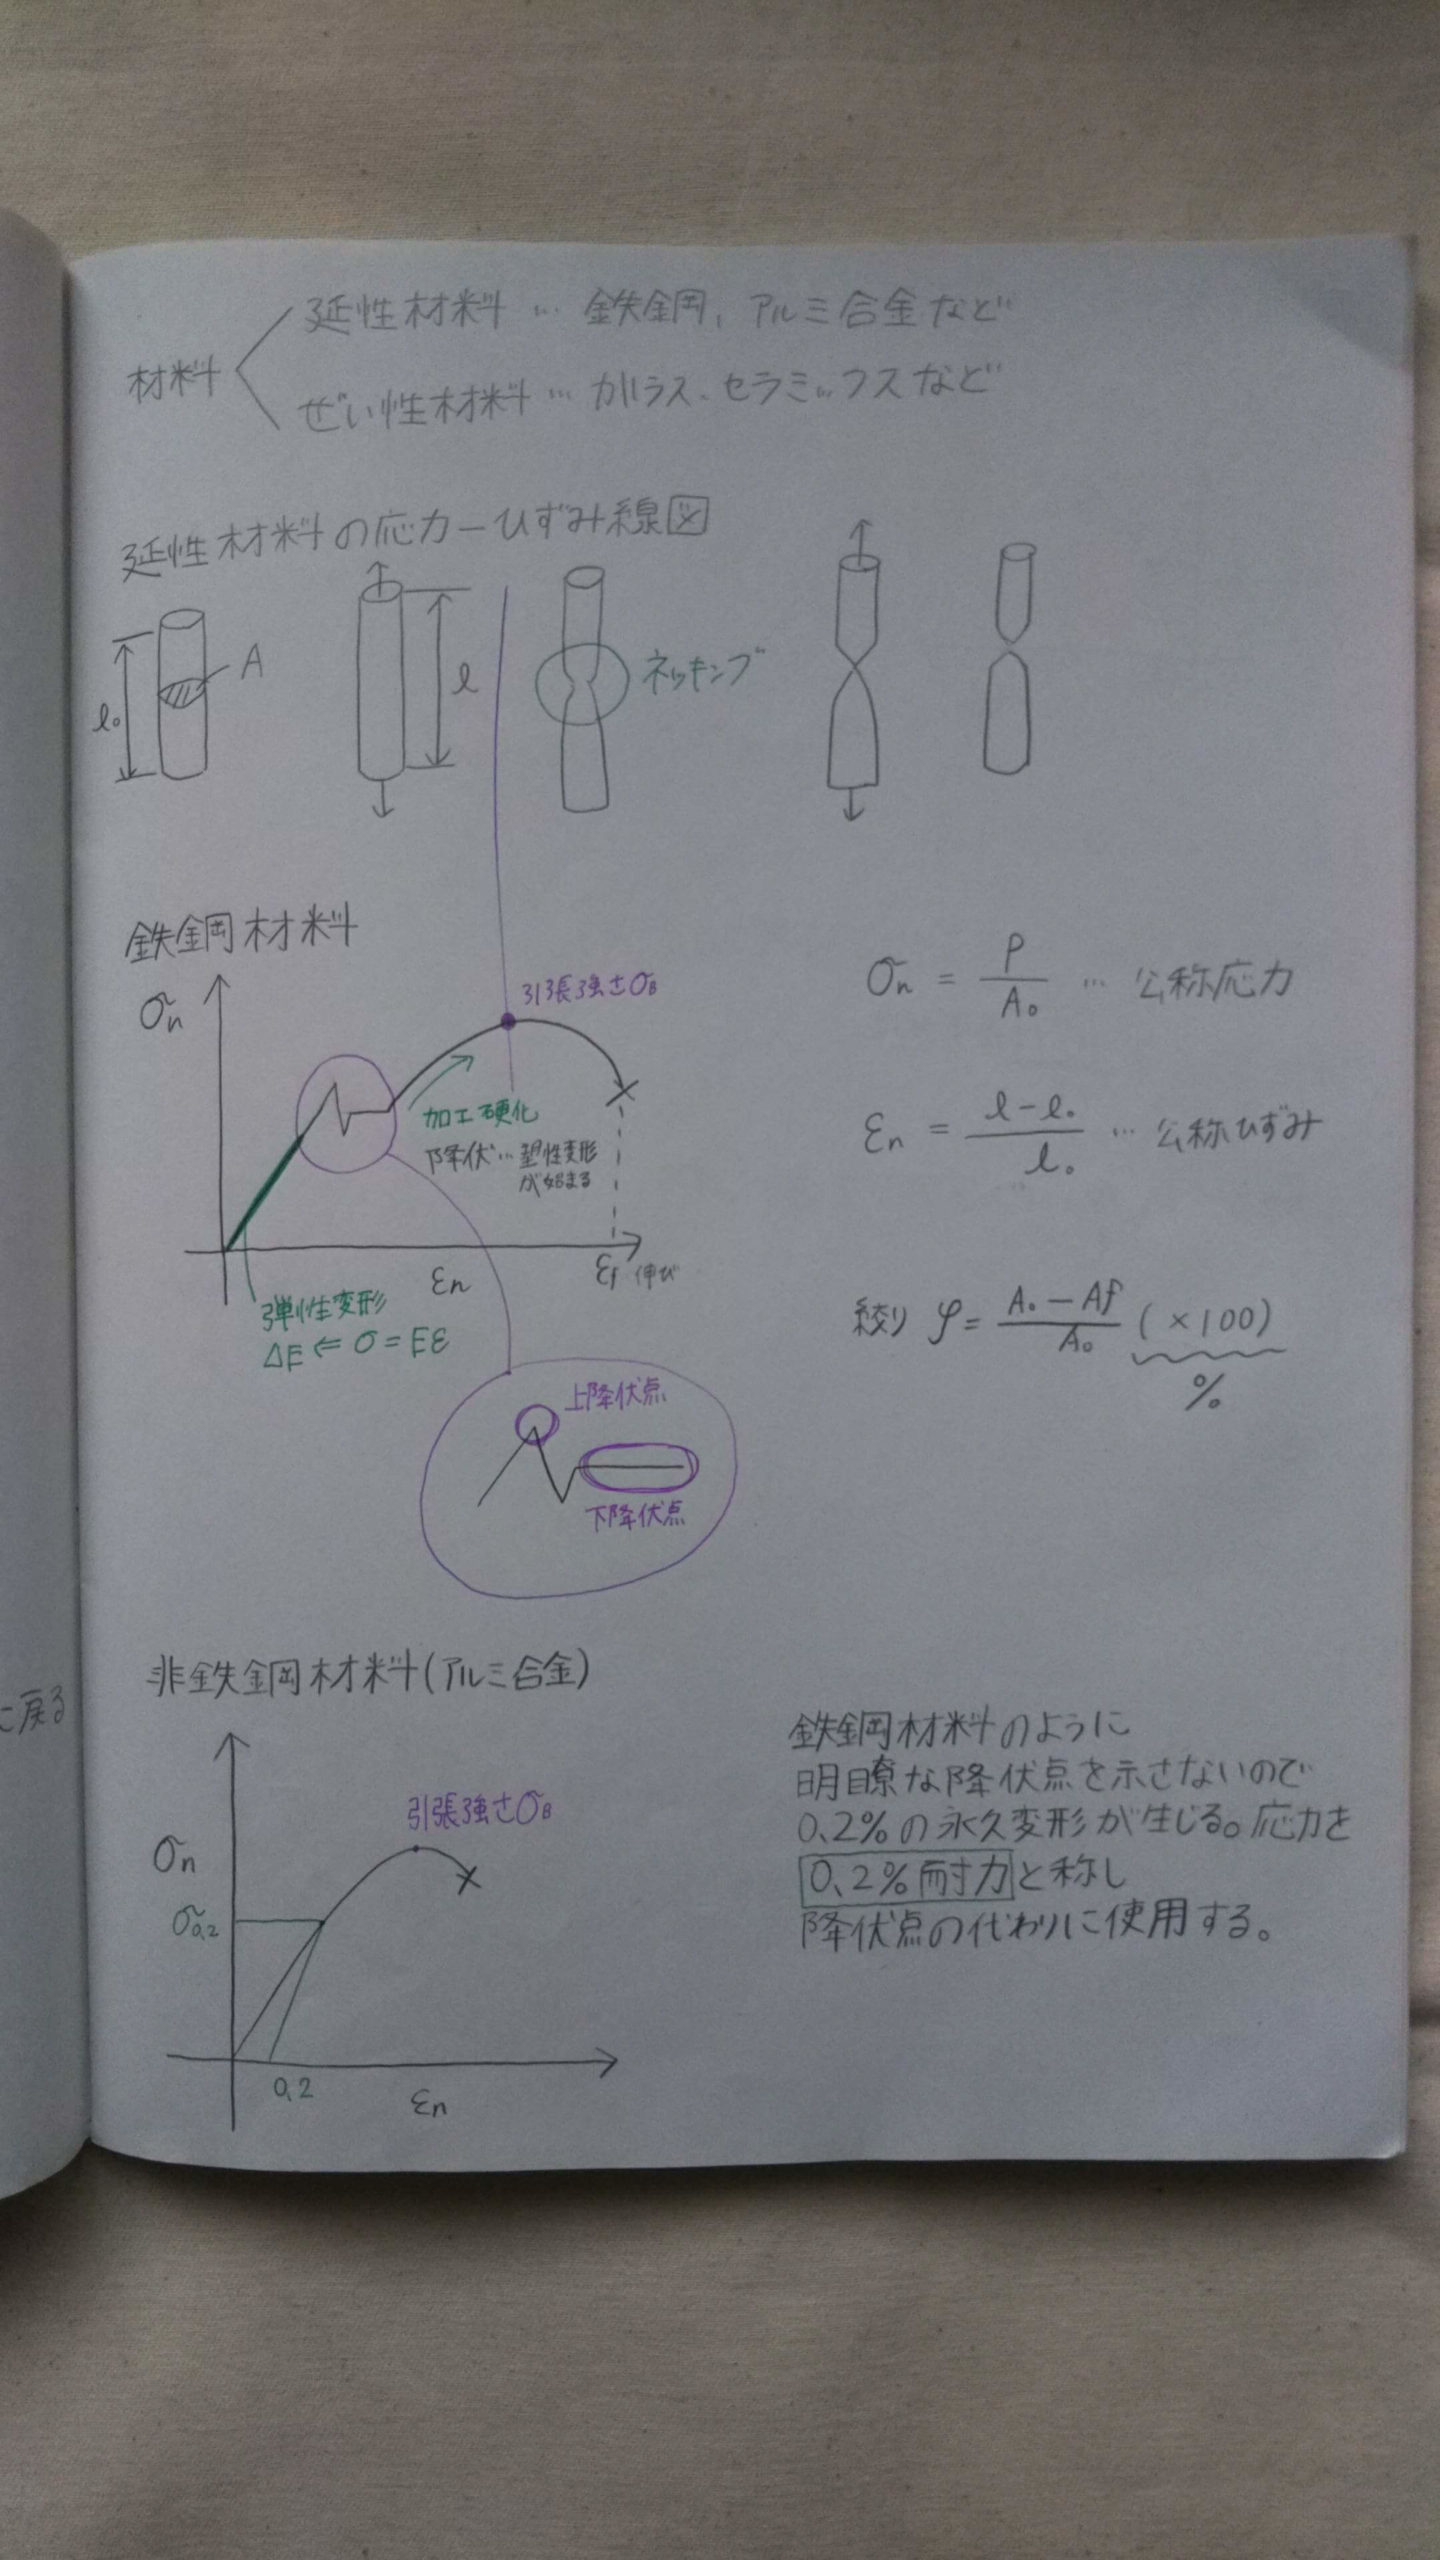 材料
延性材料 … 鉄鋼, アルミ合金など
ぜい性材料 … ガラス、セラミックスなど
延性材料の応力ーひずみ線図
l₀
A
l
ネッキング
鉄鋼材料
σn
引張強さσB
加工硬化
降伏…塑性変形
が始まる
εn
εf 伸び
弾性変形
ΔE ⇐ σ = Eε
上降伏点
下降伏点
σn = P/A₀ … 公称応力
εn = (l-l₀)/l₀ … 公称ひずみ
絞り φ = (A₀-Af)/A₀ (×100)
%
に戻る
非鉄鋼材料(アルミ合金)
引張強さσB
σn
σ0.2
0,2
εn
鉄鋼材料のように
明瞭な降伏点を示さないので
0,2%の永久変形が生じる。応力を
0,2%耐力と称し
降伏点の代わりに使用する。